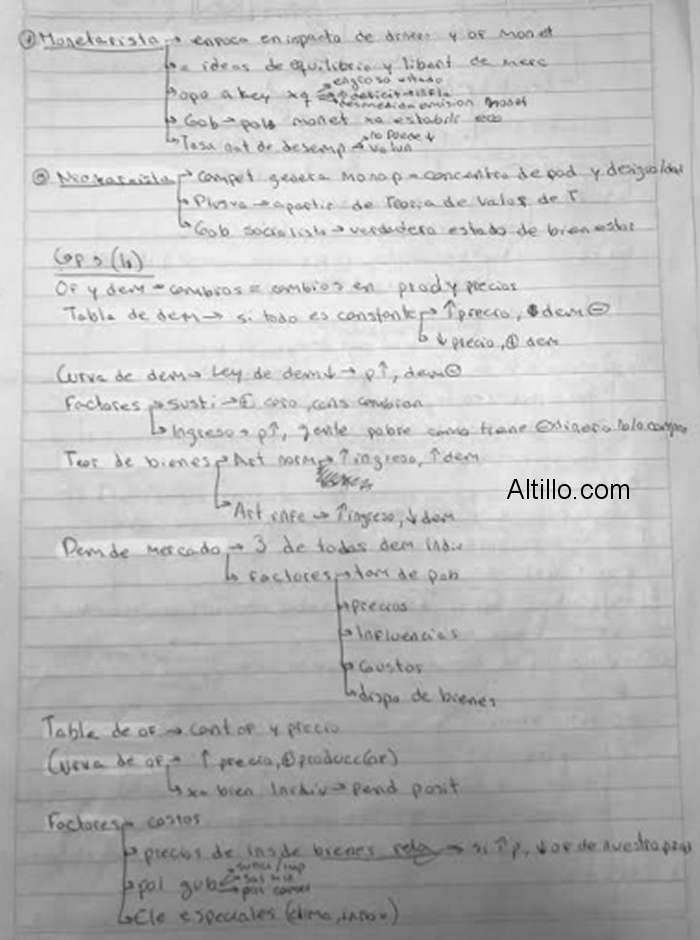 Monetarista → enfoca en impacto de dinero y of monet
→ = ideas de equilibrio y libert de merc
→ opo a key xq → engrosa estado
→ ↑ deficit → infla
→ desmedida emision monet
→ Gob → pol monet xa estabilr eco
→ Tasa nat de desemp → no puede ↓
→ volun
→ compet genera monop = concentra de pod y desigualdad
→ Plusva → a partir de Teoria de valor de T
→ Gob socialista → verdadero estado de bienestar
Cap 5 (b)
Of y dem = cambios = cambios en prod y precios
Tabla de dem → si todo es constante → ↑ precio, dem ⊖
→ ↓ precio, ⊕ dem
Curva de dem → Ley de dem ↓ → p↑, dem ⊖
Factores → susti → ⊕ caro, cons cambian
→ Ingreso → p↑, gente pobre como tiene ⊖ dinero no lo compra
Teor de bienes → Art norm → ↑ ingreso, ↑ dem
→ Art infe → ↑ ingreso, ↓ dem
Altillo.com
Dem de mercado → 3 de todas dem indiv
→ Factores → tam de pob
→ precios
→ Influencias
→ Gustos
→ dispo de bienes
Tabla de of → cant of y precio
Curva de of → ↑ precio, ⊕ producc (of)
→ xa bien indiv → pend posit
Factores → costos
→ precios de ins de bienes rela → si ↑ p, ↓ of de nuestro
→ pol gub
→ Ele especiales (clima,